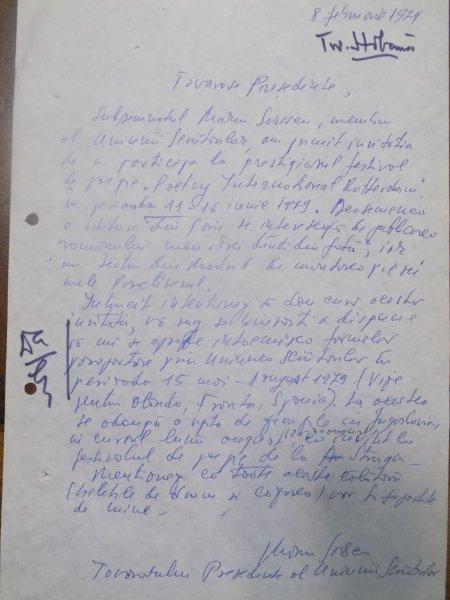 8 februarie 1979
Tov. Hobană
Tovarășe Președinte,
Subsemnatul Marin Sorescu, membru
al Uniunii Scriitorilor, am primit invitația
de a participa la prestigiosul festival
de poezie „Poetry International Rotterdam",
în perioada 11-16 iunie 1979. Deasemenea
o editură din Paris se interesează de publicarea
romanului meu „Trei dinți din față", iar
un teatru din Madrid de
mele
Întrucît intenționez să dau curs acestor
invitații, vă rog să binevoiți a dispune
să mi se întocmirea formelor
pașaport prin Uniunea Scriitorilor în
perioada 15 mai - August 1979 (Vize
pentru Olanda, Franța, Spania). La aceasta
se adaugă o de în Jugoslavia,
în cursul lunii august
festivalul de poezie de la Struga.
Menționez că toate aceste
(biletele de drum și ) vor fi suportate
de mine.
Marin Sorescu
Tovarășului Președinte al Uniunii Scriitorilor